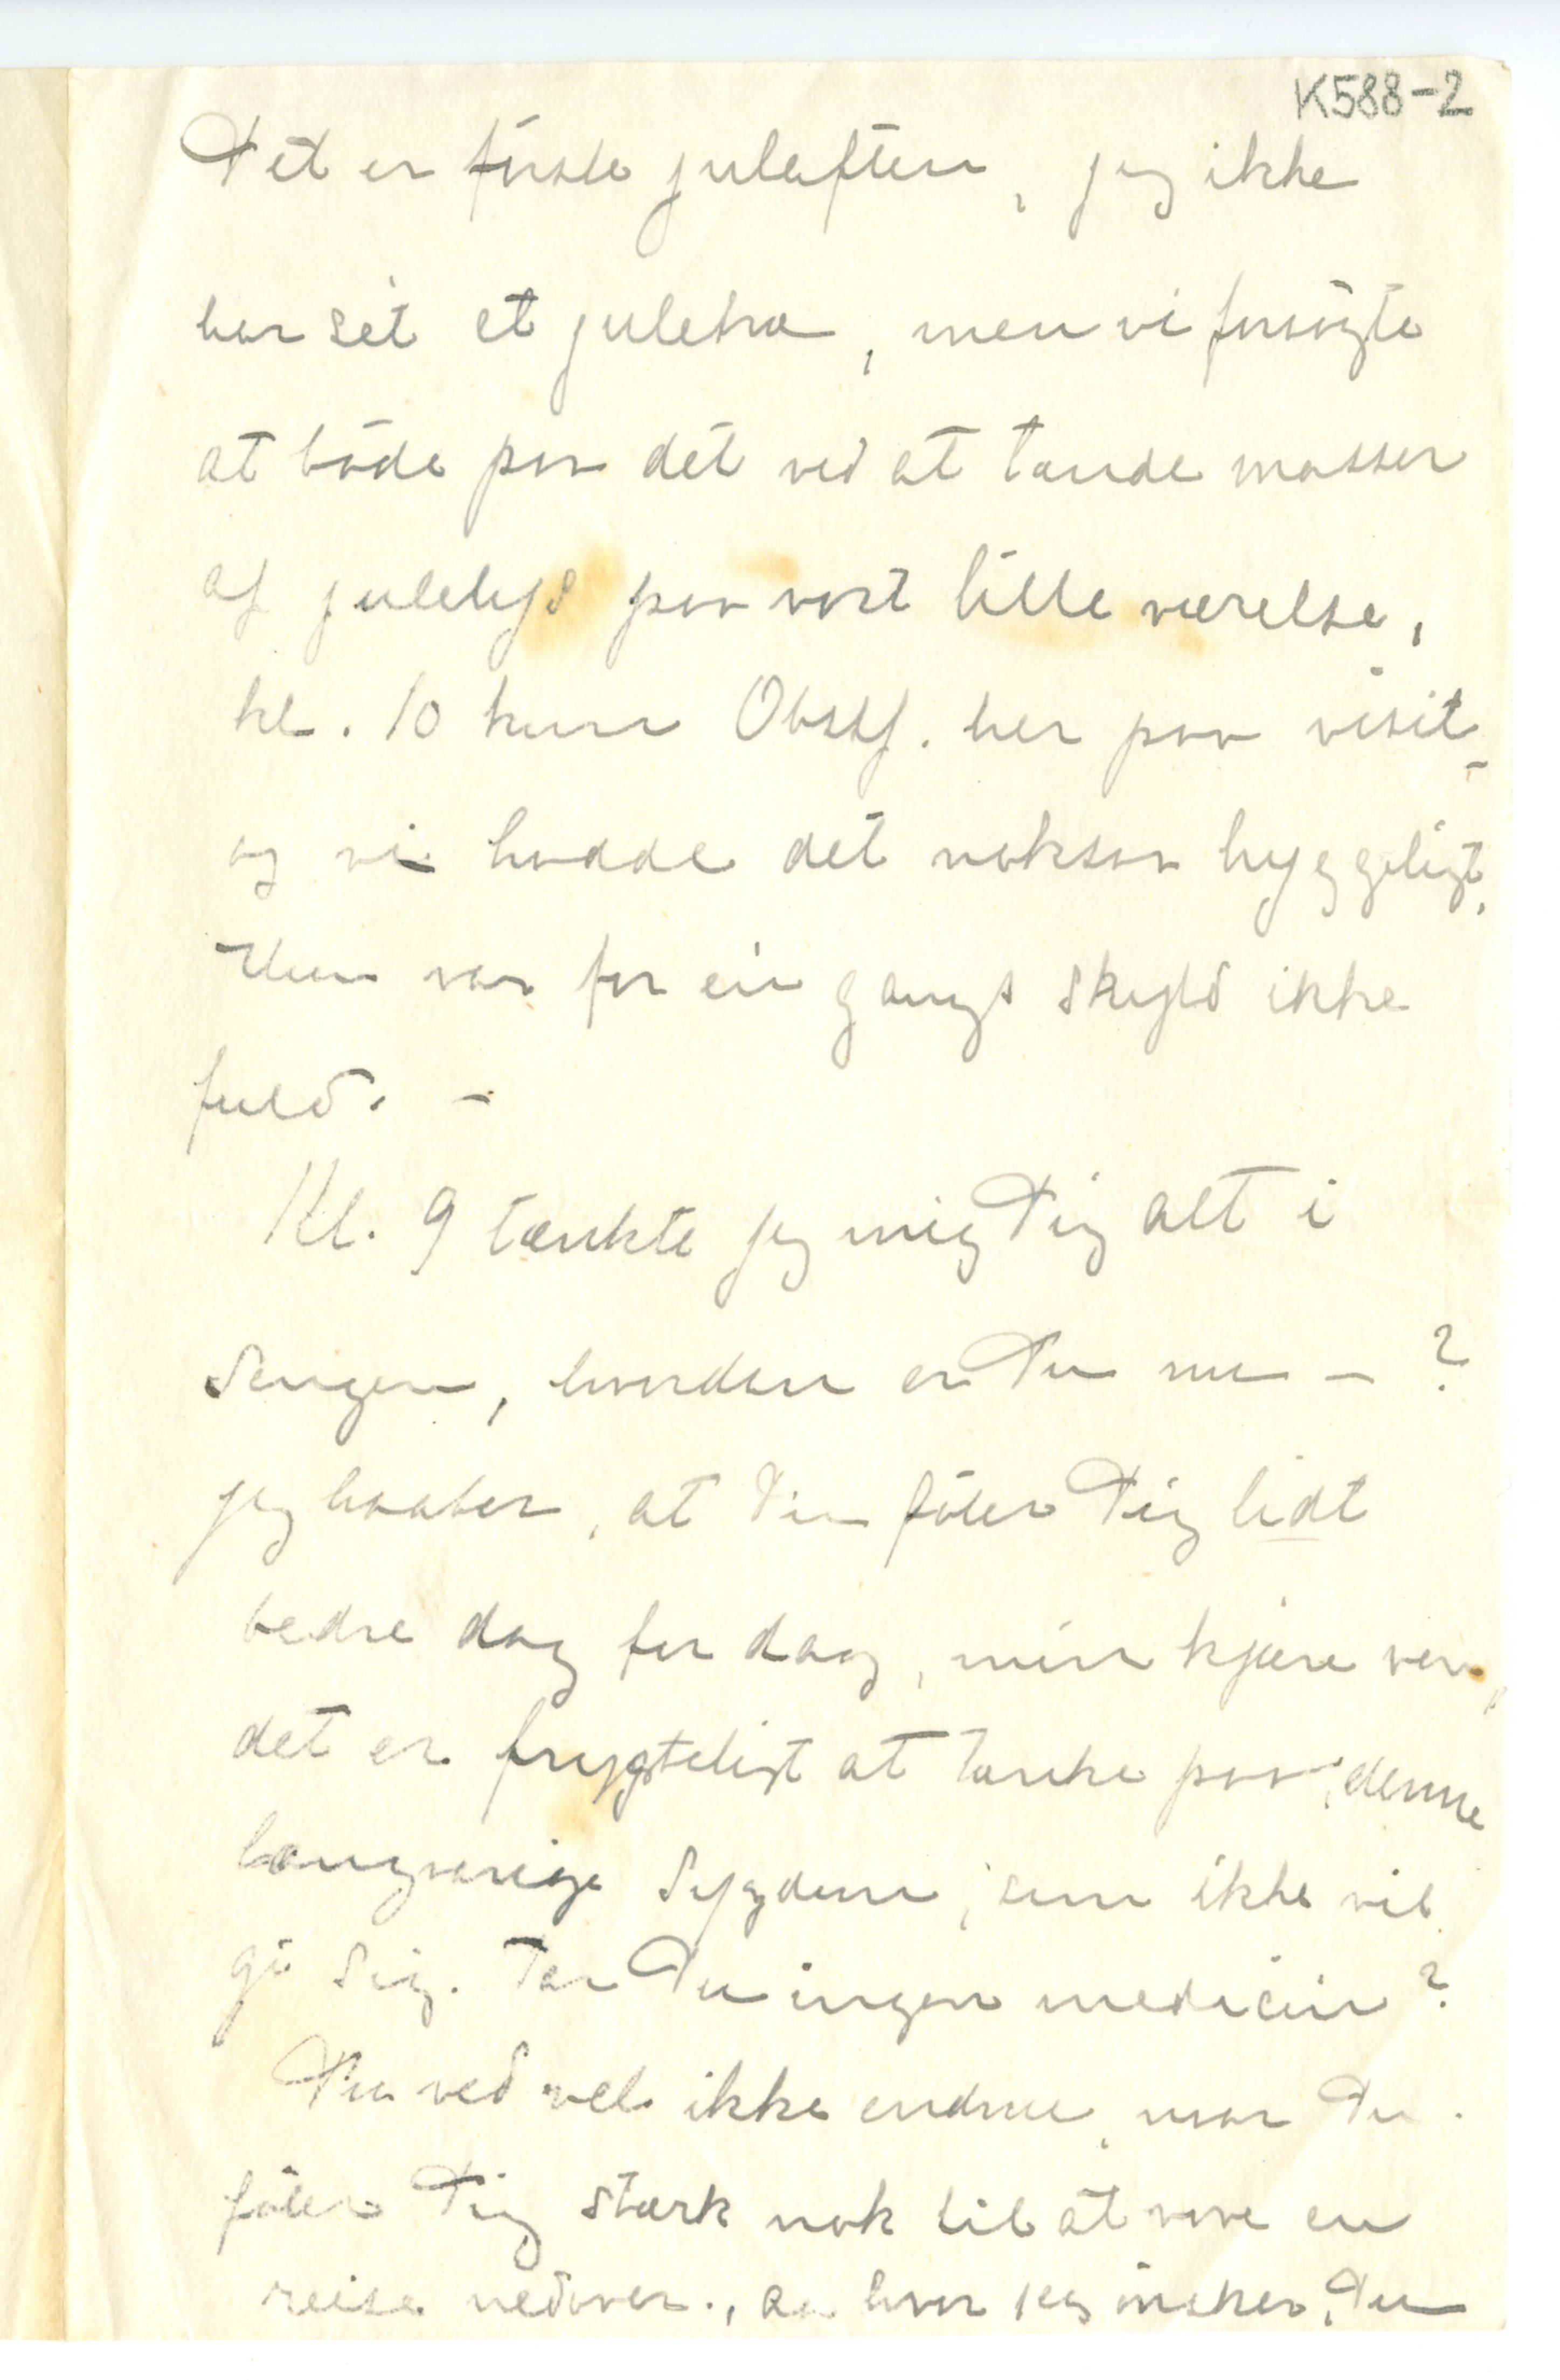 K588-2
Det er første juleaften, jeg ikke
har sét et juletræ, men vi forsøgte
at bøde paa det ved at tænde masser
af julelys paa vort lille værelse,
kl. 10 kom Obstf. her paa visit,
og vi hadde det noksaa hyggeligt,
Hun var for ein gangs skyld ikke
fuld. –
Kl. 9 tænkte jeg mig Dig alt i
Sengen, hvordan er Du nu – ?
jeg haaber, at Du føler Dig lidt
bedre dag for dag, min kjære ven,
det er frygteligt at tænke paa, denne
langvarige Sygdom, som ikke vil
gi Sig. Tar Du ingen medicin?
Du ved vel ikke endnu, naar Du
føler Dig stærk nok til at vove en
reise nedover., aa hvor jeg ønsker, Du